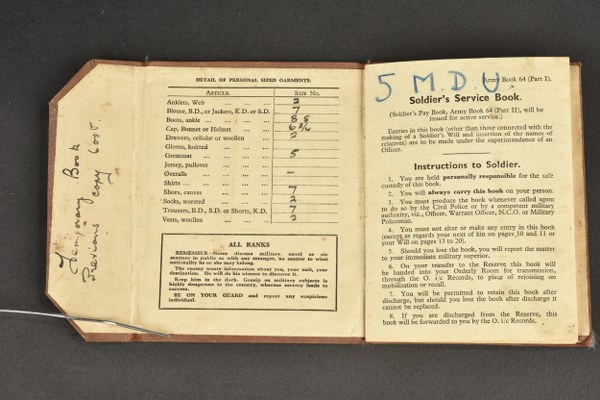 Temporary Book
Previous copy lost.
DETAIL OF PERSONAL SIZED GARMENTS.
ARTICLE. SIZE NO.
Anklets, Web ... ... ... 2
Blouse, B.D., or Jackets, K.D. or S.D. 7
Boots, ankle ... ... ... ...
Cap, Bonnet or Helmet ... ...
Drawers, cellular or woollen ... 2
Gloves, knitted ... ... ...
Greatcoat ... ... ... 5
Jersey, pullover ... ...
Overalls ... ... ... –
Shirts ... ... ... ...
Shoes, canvas ... ... ... 7
Socks, worsted ... ... ... 2
Trousers, B.D., S.D. or Shorts, K.D. 7
Vests, woollen ... ... ... 2
ALL RANKS
REMEMBER—Never discuss military, naval or air
matters in public or with any stranger, no matter to what
nationality he or she may belong.
The enemy wants information about you, your unit, your
destination. He will do his utmost to discover it.
Keep him in the dark. Gossip on military subjects is
highly dangerous to the country, whereas secrecy leads to
success.
BE ON YOUR GUARD and report any suspicious
individual.
5 M.D.U.
Army Book 64 (Part I).
Soldier's Service Book.
(Soldier's Pay Book, Army Book 64 (Part II), will be
issued for active service.)
Entries in this book (other than those connected with the
making of a Soldier's Will and insertion of the names of
relatives) are to be made under the superintendence of an
Officer.
Instructions to Soldier.
1. You are held personally responsible for the safe
custody of this book.
2. You will always carry this book on your person.
3. You must produce the book whenever called upon
to do so by the Civil Police or by a competent military
authority, viz., Officer, Warrant Officer, N.C.O. or Military
Policeman.
4. You must not alter or make any entry in this book
(except as regards your next of kin on pages 10 and 11 or
your Will on pages 15 to 20).
5. Should you lose the book, you will report the matter
to your immediate military superior.
6. On your transfer to the Reserve this book will
be handed into your Orderly Room for transmission,
through the O. i/c Records, to place of rejoining on
mobilization or recall.
7. You will be permitted to retain this book after
discharge, but should you lose the book after discharge it
cannot be replaced.
8. If you are discharged from the Reserve, this
book will be forwarded to you by the O. i/c Records.